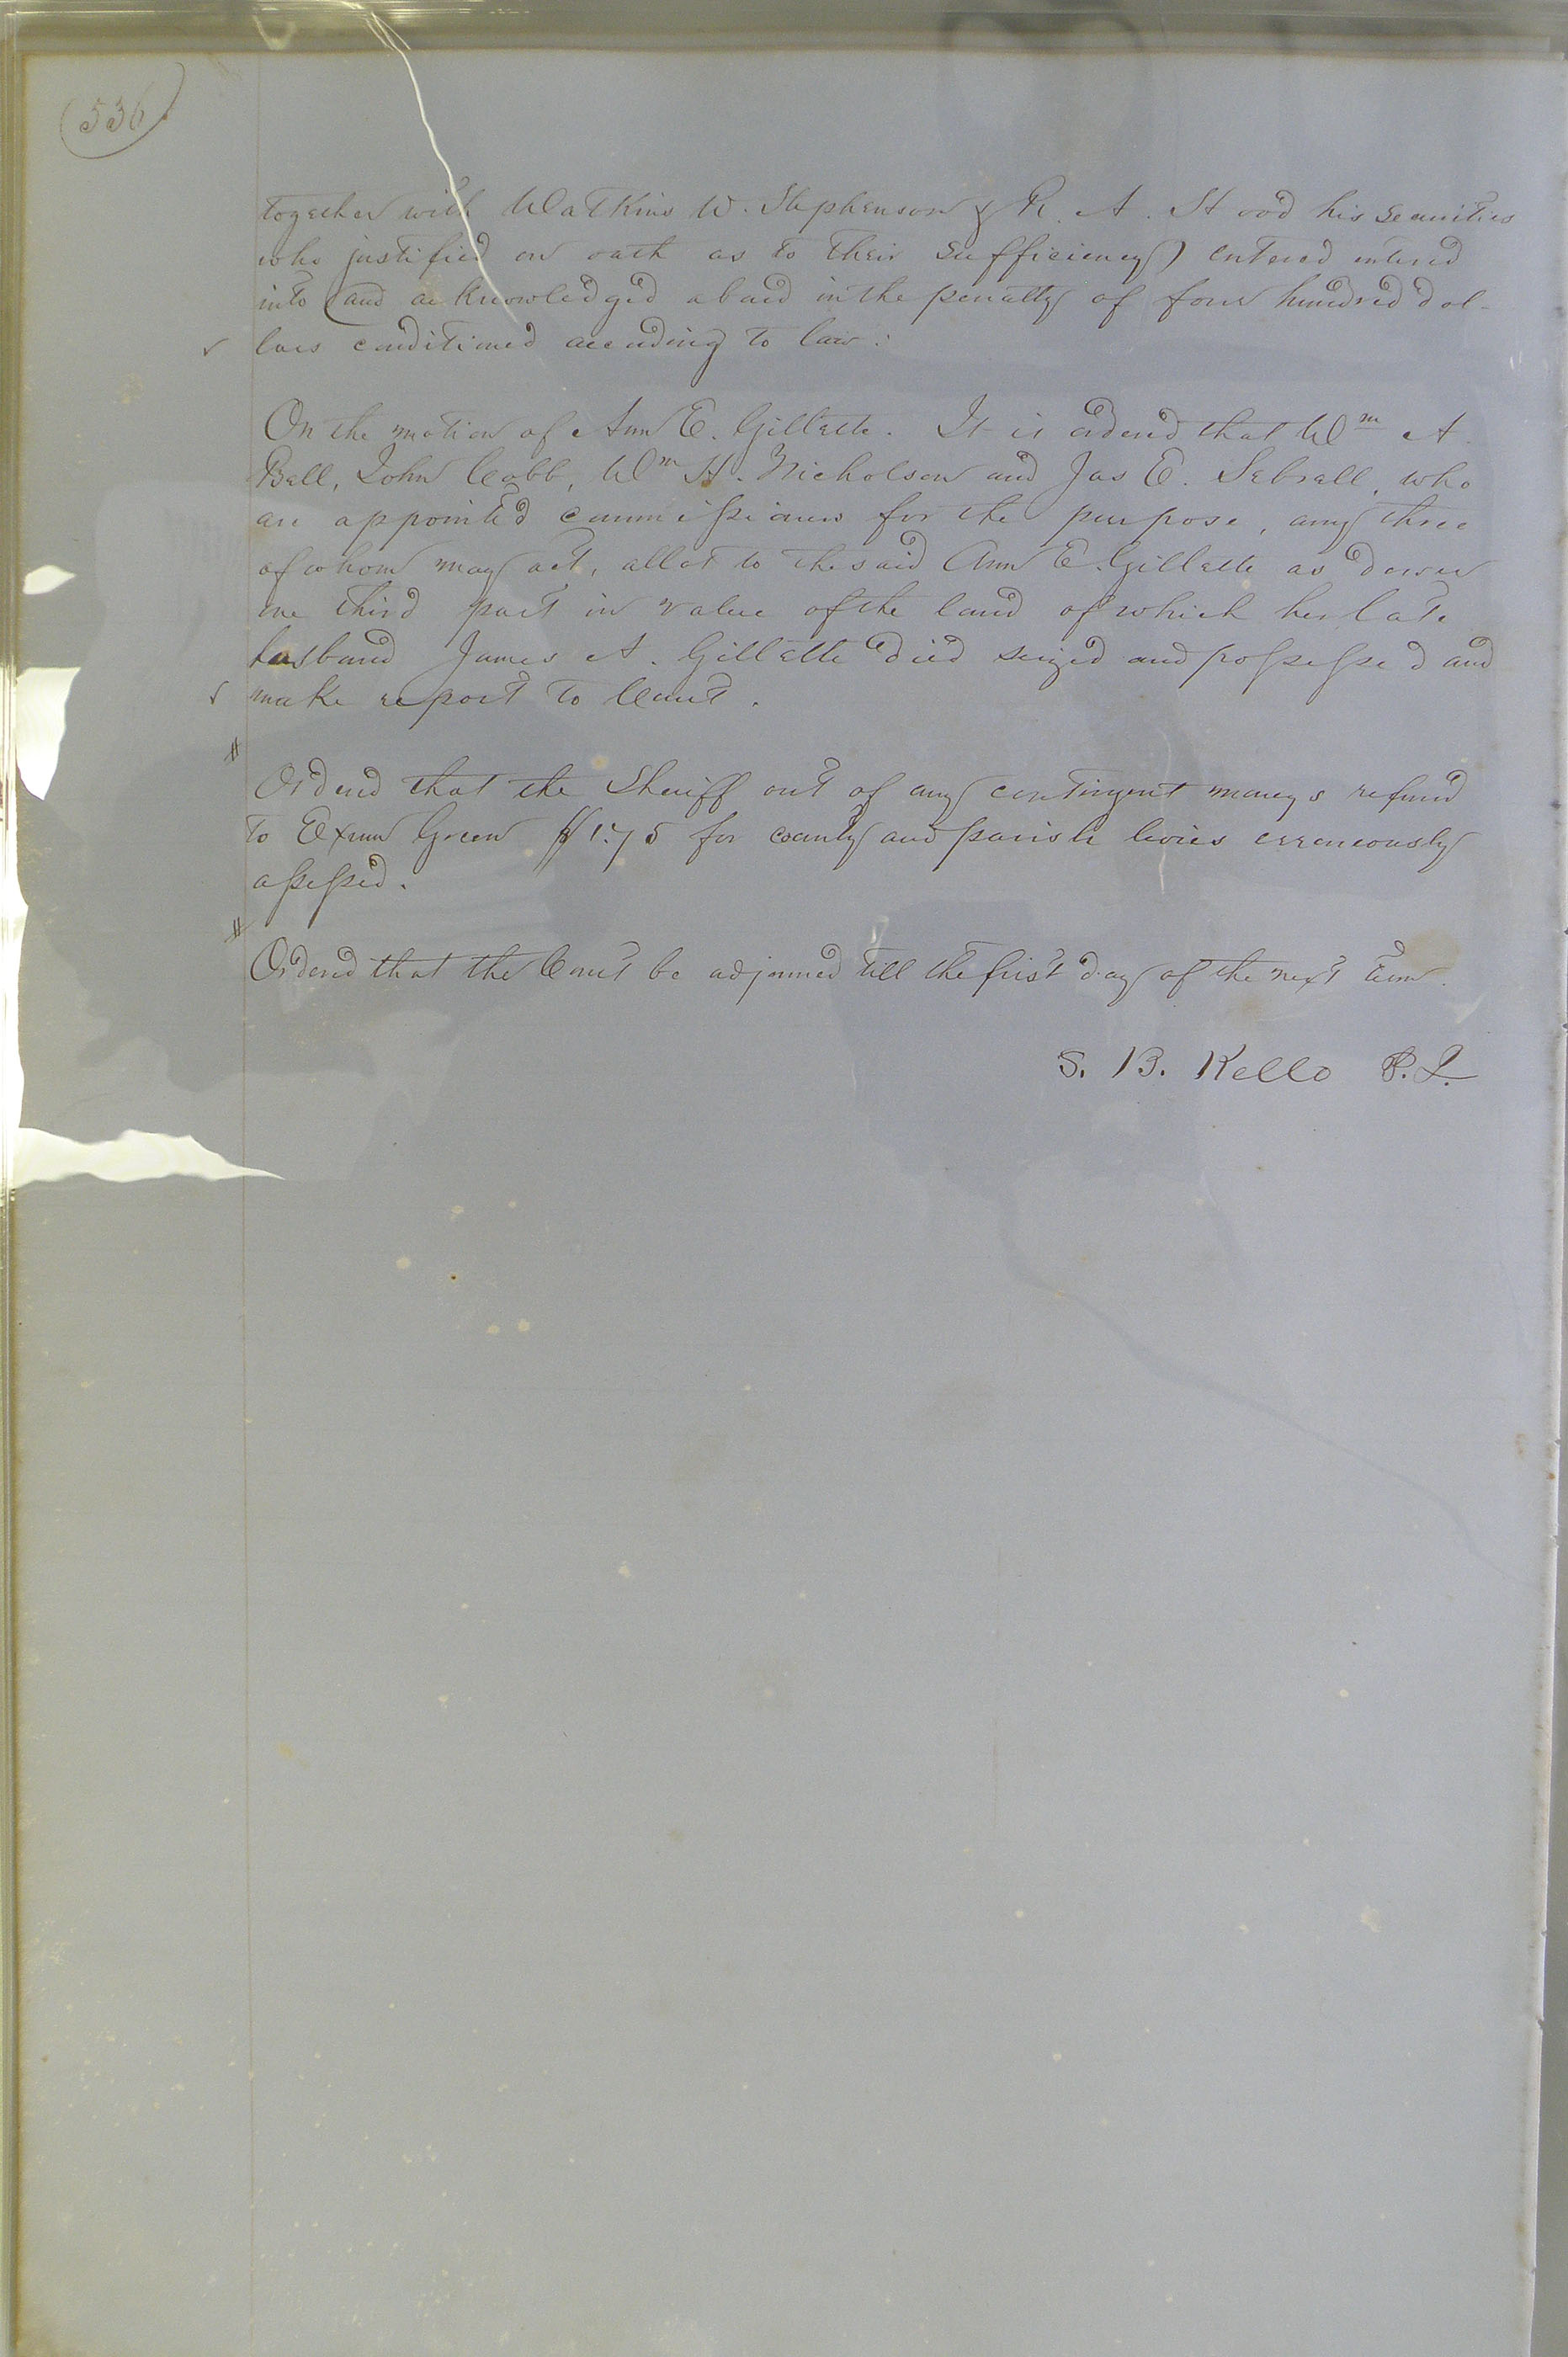 (536)
together with Watkins W. Stephenson & R. A. Hood his securities
who justified on oath as to their sufficiency) entered entered
into (and acknowledged a bond in the penalty of four hundred dol-
✓ lars conditioned according to law.
On the motion of Ann E. Gillette. It is ordered that Wm A.
Bell, John Cobb, Wm H. Nicholson and Jas E. Sebrell, who
are appointed commissioners for the purpose, any three
of whom may act, allot to the said Ann E. Gillette as dower
one third part in value of the land of which her late
husband James A. Gillette died seized and possessed and
✓ make report to Court.
#
Ordered that the Sheriff out of any contingent moneys refund
to Exum Green $1.75 for county and parish levies erroneously
assessed.
#
Ordered that the Court be adjourned till the first day of the next term.
S. B. Kello P. J.